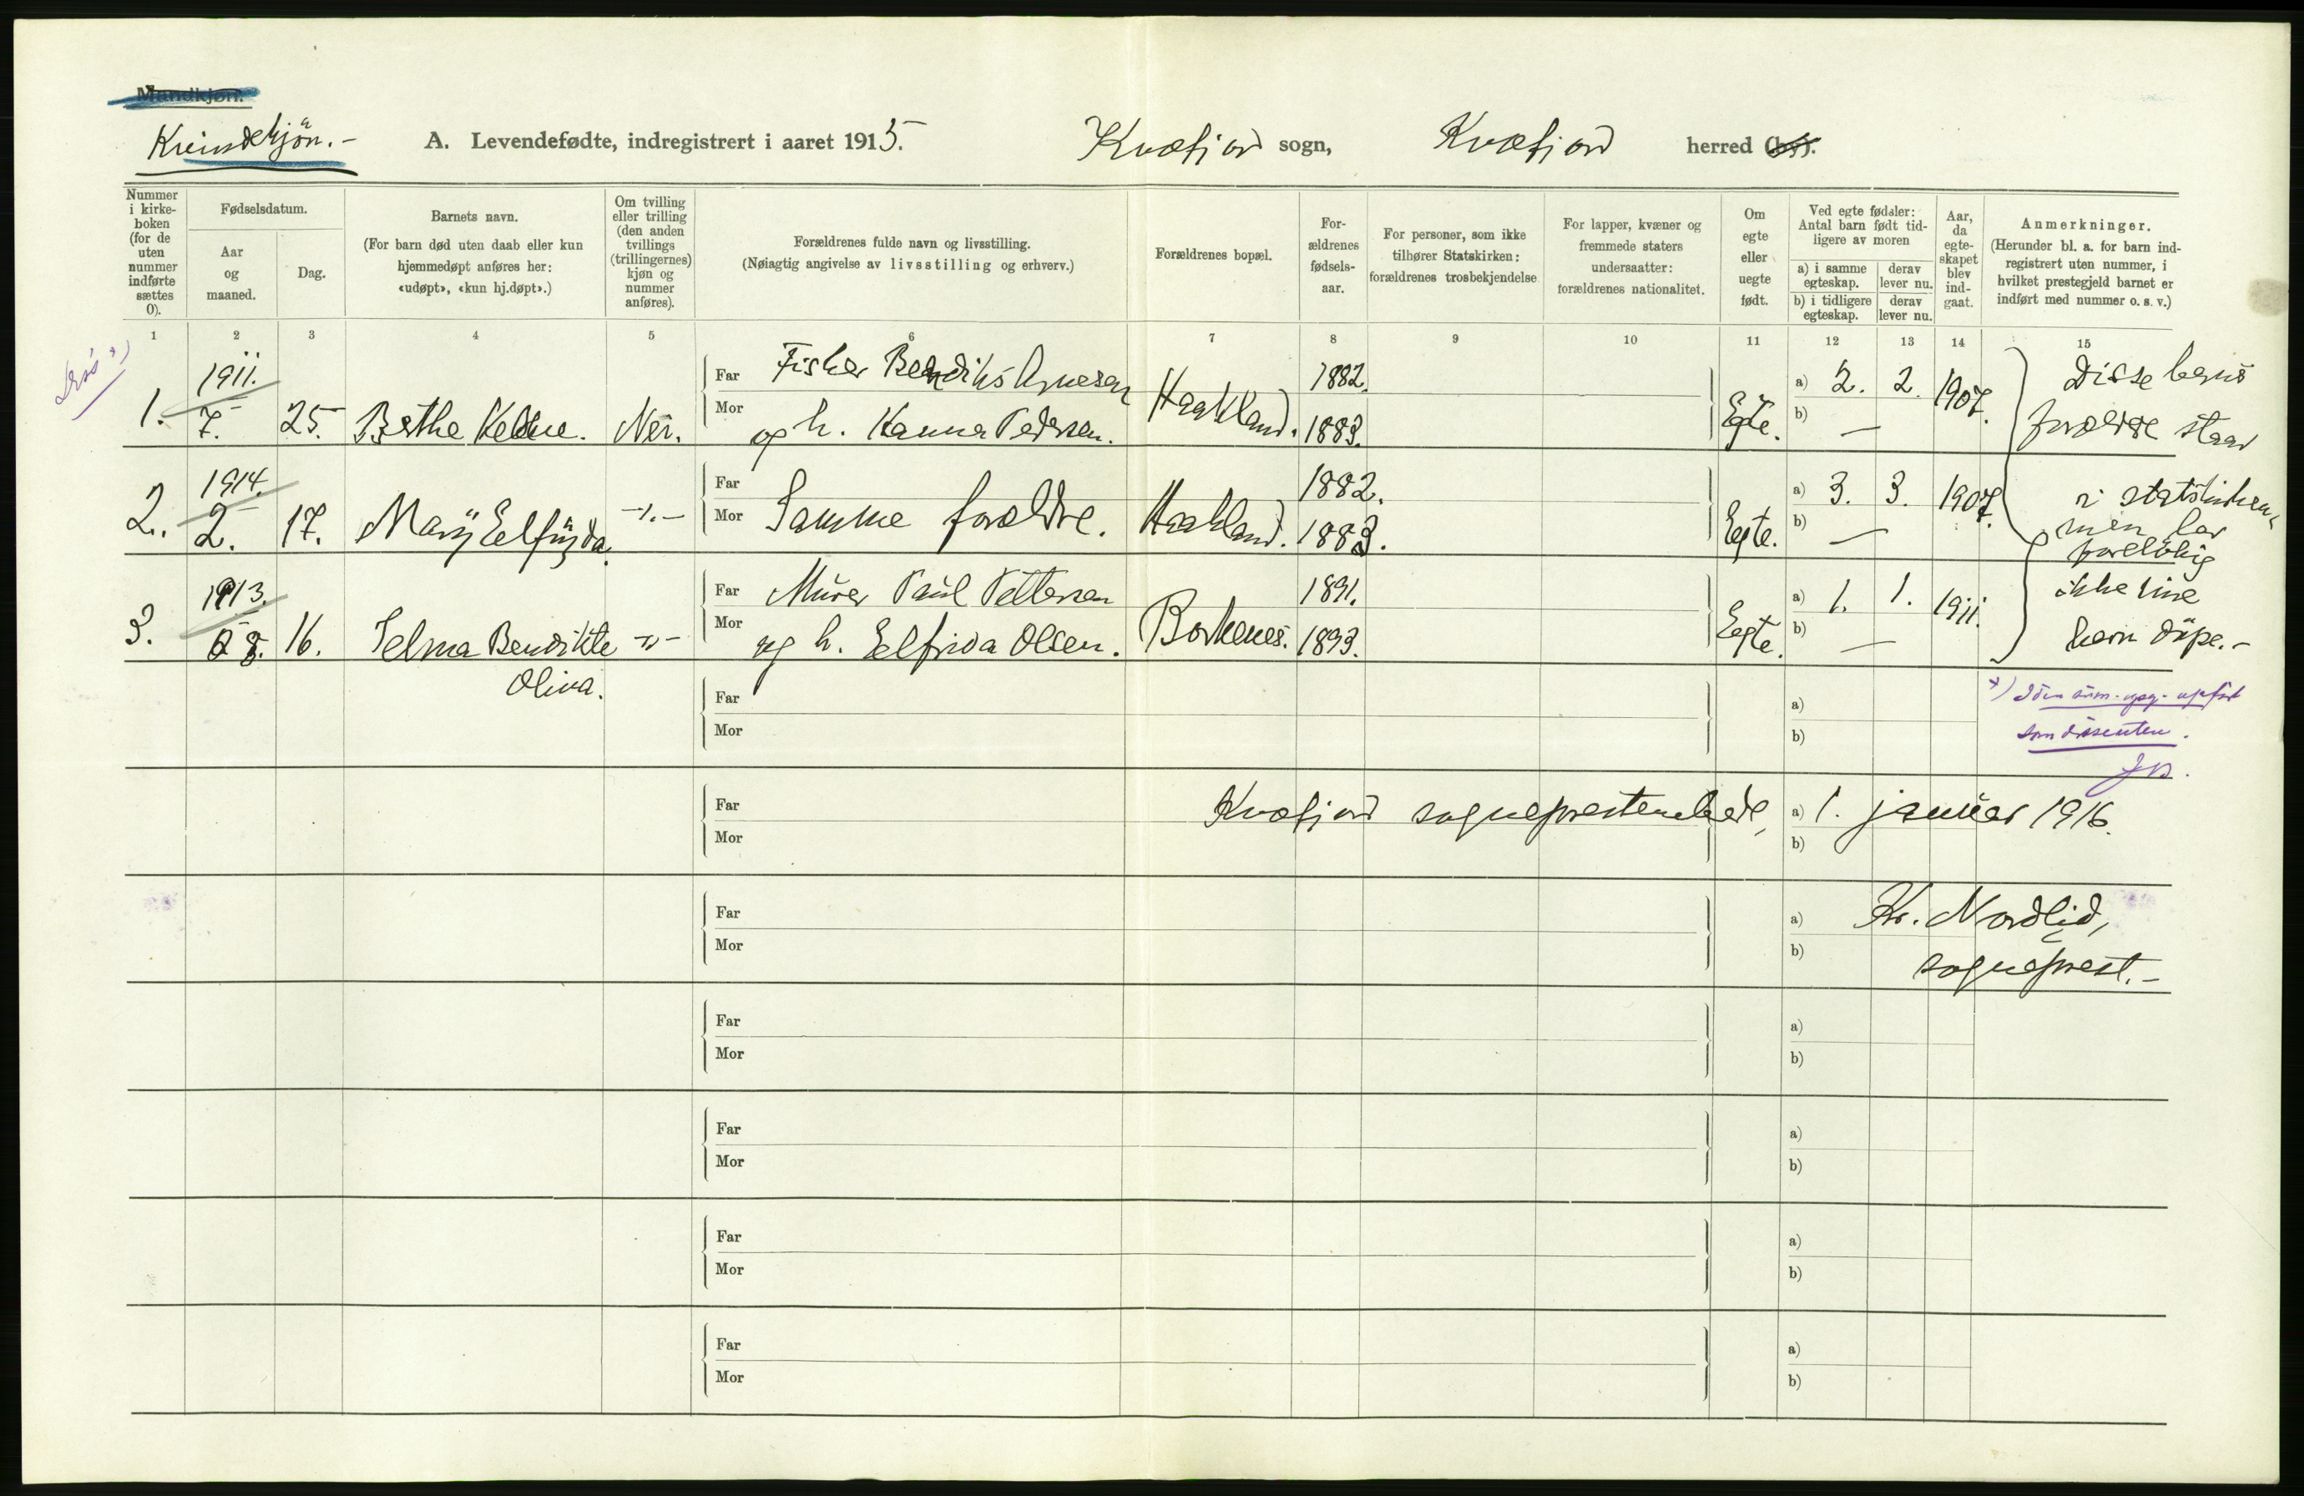 Mandkjøn.
Kvindekjön.-
A. Levendefødte, indregistrert i aaret 1915.
Kvæfjord sogn, Kvæfjord herred (by).
Nummer i kirkeboken (for de uten nummer indførte sættes 0).
Fødselsdatum.
Aar og maaned.
Dag.
Barnets navn.
(For barn død uten daab eller kun hjemmedøpt anføres her: «udøpt», «kun hj.døpt».)
Om tvilling eller trilling (den anden tvillings (trillingernes) kjøn og nummer anføres).
Forældrenes fulde navn og livsstilling.
(Nøiagtig angivelse av livsstilling og erhverv.)
Forældrenes bopæl.
Forældrenes fødselsaar.
For personer, som ikke tilhører Statskirken: forældrenes trosbekjendelse
For lapper, kvæner og fremmede staters undersaatter: forældrenes nationalitet.
Om egte eller uegte født.
Ved egte fødsler: Antal barn født tidligere av moren
a) i samme egteskap. derav lever nu.
b) i tidligere egteskap. derav lever nu.
Aar, da egteskapet blev indgaat.
Anmerkninger.
(Herunder bl. a. for barn indregistrert uten nummer, i hvilket prestegjeld barnet er indført med nummer o. s. v.)
1 2 3 4 5 6 7 8 9 10 11 12 13 14 15
1. 1911. 7. 25. Berthe Nei.
Far Fisker Bendiks Arnesen
Mor og h. Hanna Pedersen.
Haakland. 1882. 1883. Egte. a) 2. 2. b) — 1907.
2. 1914. 2. 17. Mary Elfrida. -"-
Far Mor Samme forældre.
Haakland. 1882. 1883. Egte. a) 3. 3. b) — 1907.
3. 1913. 8. 16. Selma Bendikte Oliva. -"-
Far Murer Paul Pettersen
Mor og h. Elfrida Olsen.
Borkenes. 1891. 1893. Egte. a) 1. 1. b) — 1911.
Disse barns
forældre staar
i statskirken
men lar
foreløbig
ikke sine
barn döpe.-
som dissenter.
Far
Mor
a)
b)
Far
Mor
Kvæfjord sogneprestembede, a) 1. januar 1916.
b)
Far
Mor
a) Kr. Nordlid,
b) sogneprest.-
Far
Mor
a)
b)
Far
Mor
a)
b)
Far
Mor
a)
b)
Far
Mor
a)
b)